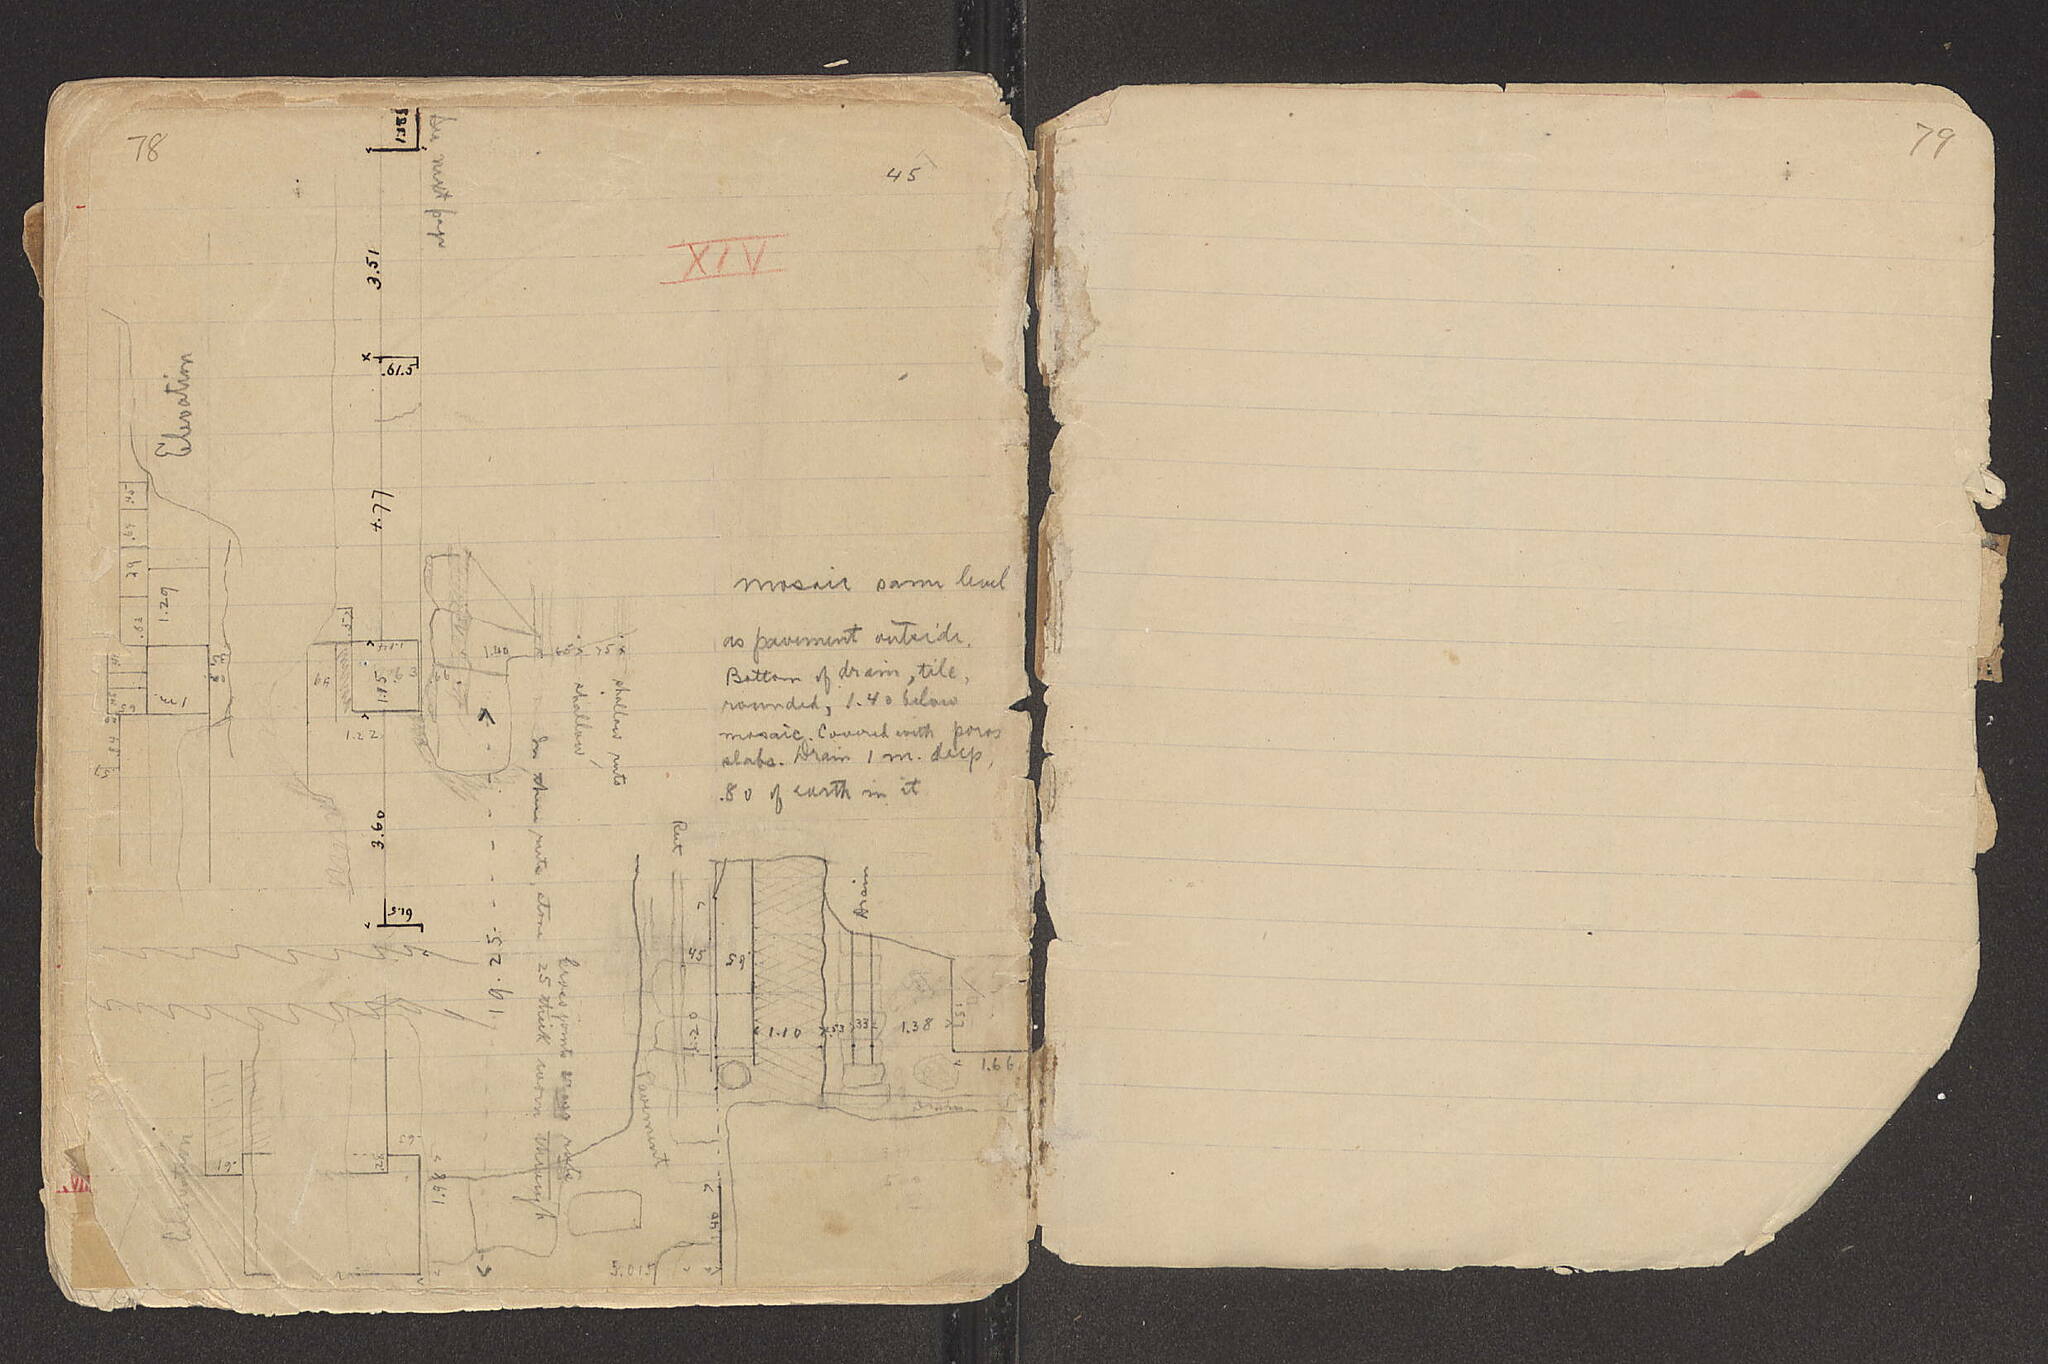 78
45
XIV
See next page
1.385
3.51
.61.5
4.77
Elevation
.62
1.29
1.15
1.22
3.60
61.5
1.40
shallow ruts
shallow
19.25
stone 25 thick worn through
Cross joints
mosaic same level
as pavement outside.
Bottom of drain, tile,
rounded, 1.40 below
mosaic. Covered with poros
slabs. Drain 1 m. deep,
.80 of earth in it
Rut
Drain
45
59
1.10
.53
.33
1.38
1.57
1.66
Pavement
Drain
Elevation
.19
.28
1.98
5.015
79